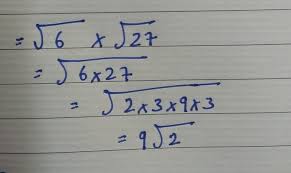 = √6 × √27
= √6×27
= √2×3×9×3
= 9√2